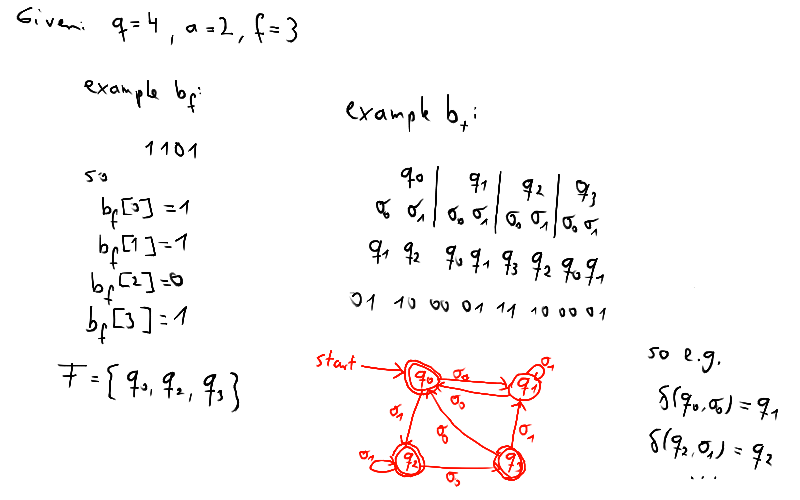 Given: q=4, a=2, f=3
example b_f:
1101
so
b_f[0]=1
b_f[1]=1
b_f[2]=0
b_f[3]=1
F={q₀, q₂, q₃}
example b_t:
q₀ | q₁ | q₂ | q₃
σ₀ σ₁ | σ₀ σ₁ | σ₀ σ₁ | σ₀ σ₁
q₁ q₂ q₀ q₁ q₃ q₂ q₀ q₁
01 10 00 01 11 10 00 01
start
q₀
σ₀
q₁
σ₁
σ₀
σ₁
σ₁
σ₁
q₂
σ₀
q₃
so e.g.
δ(q₀,σ₀)=q₁
δ(q₂,σ₁)=q₂
...